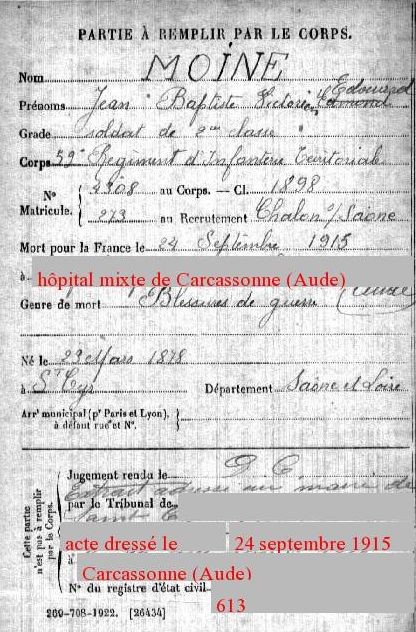 PARTIE À REMPLIR PAR LE CORPS.
Nom MOINE
Edouard
Prénoms Jean Baptiste Victorin Edmond
Grade soldat de 2me classe
Corps 59e Régiment d'Infanterie Territoriale
N° 2908 au Corps. — Cl. 1898
Matricule. 273 au Recrutement Chalon s/ Saône
Mort pour la France le 24 Septembre 1915
à hôpital mixte de Carcassonne (Aude)
Genre de mort Blessures de guerre
Né le 29 Mars 1878
à St Cyr Département Saône et Loire
Arrt municipal (pr Paris et Lyon),
à défaut rue et N°.
Cette partie
n'est pas à remplir
par le Corps.
Jugement rendu le D C
Extrait adressé au maire de
par le Tribunal de
Saint C
acte dressé le 24 septembre 1915
à Carcassonne (Aude)
N° du registre d'état civil
613
269-708-1922. [26434]